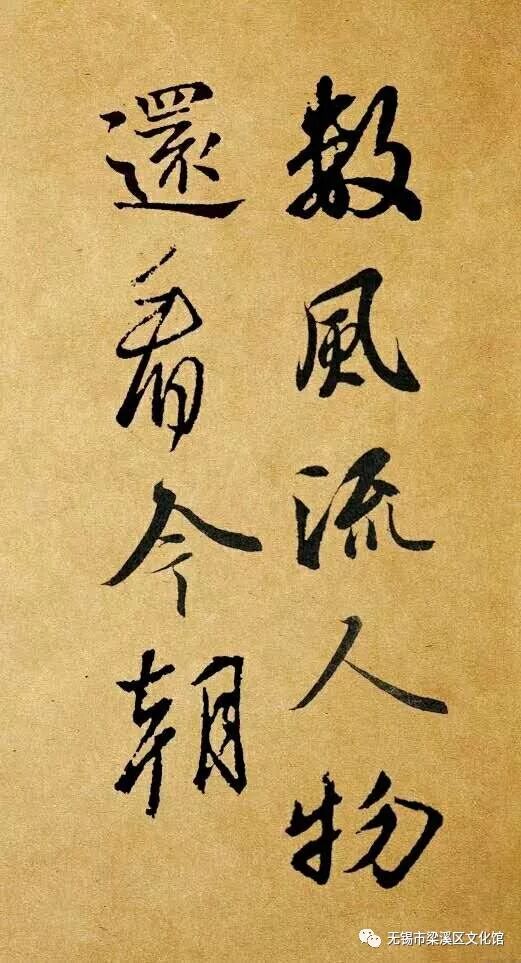 數風流人物
還看今朝
无锡市梁溪区文化馆